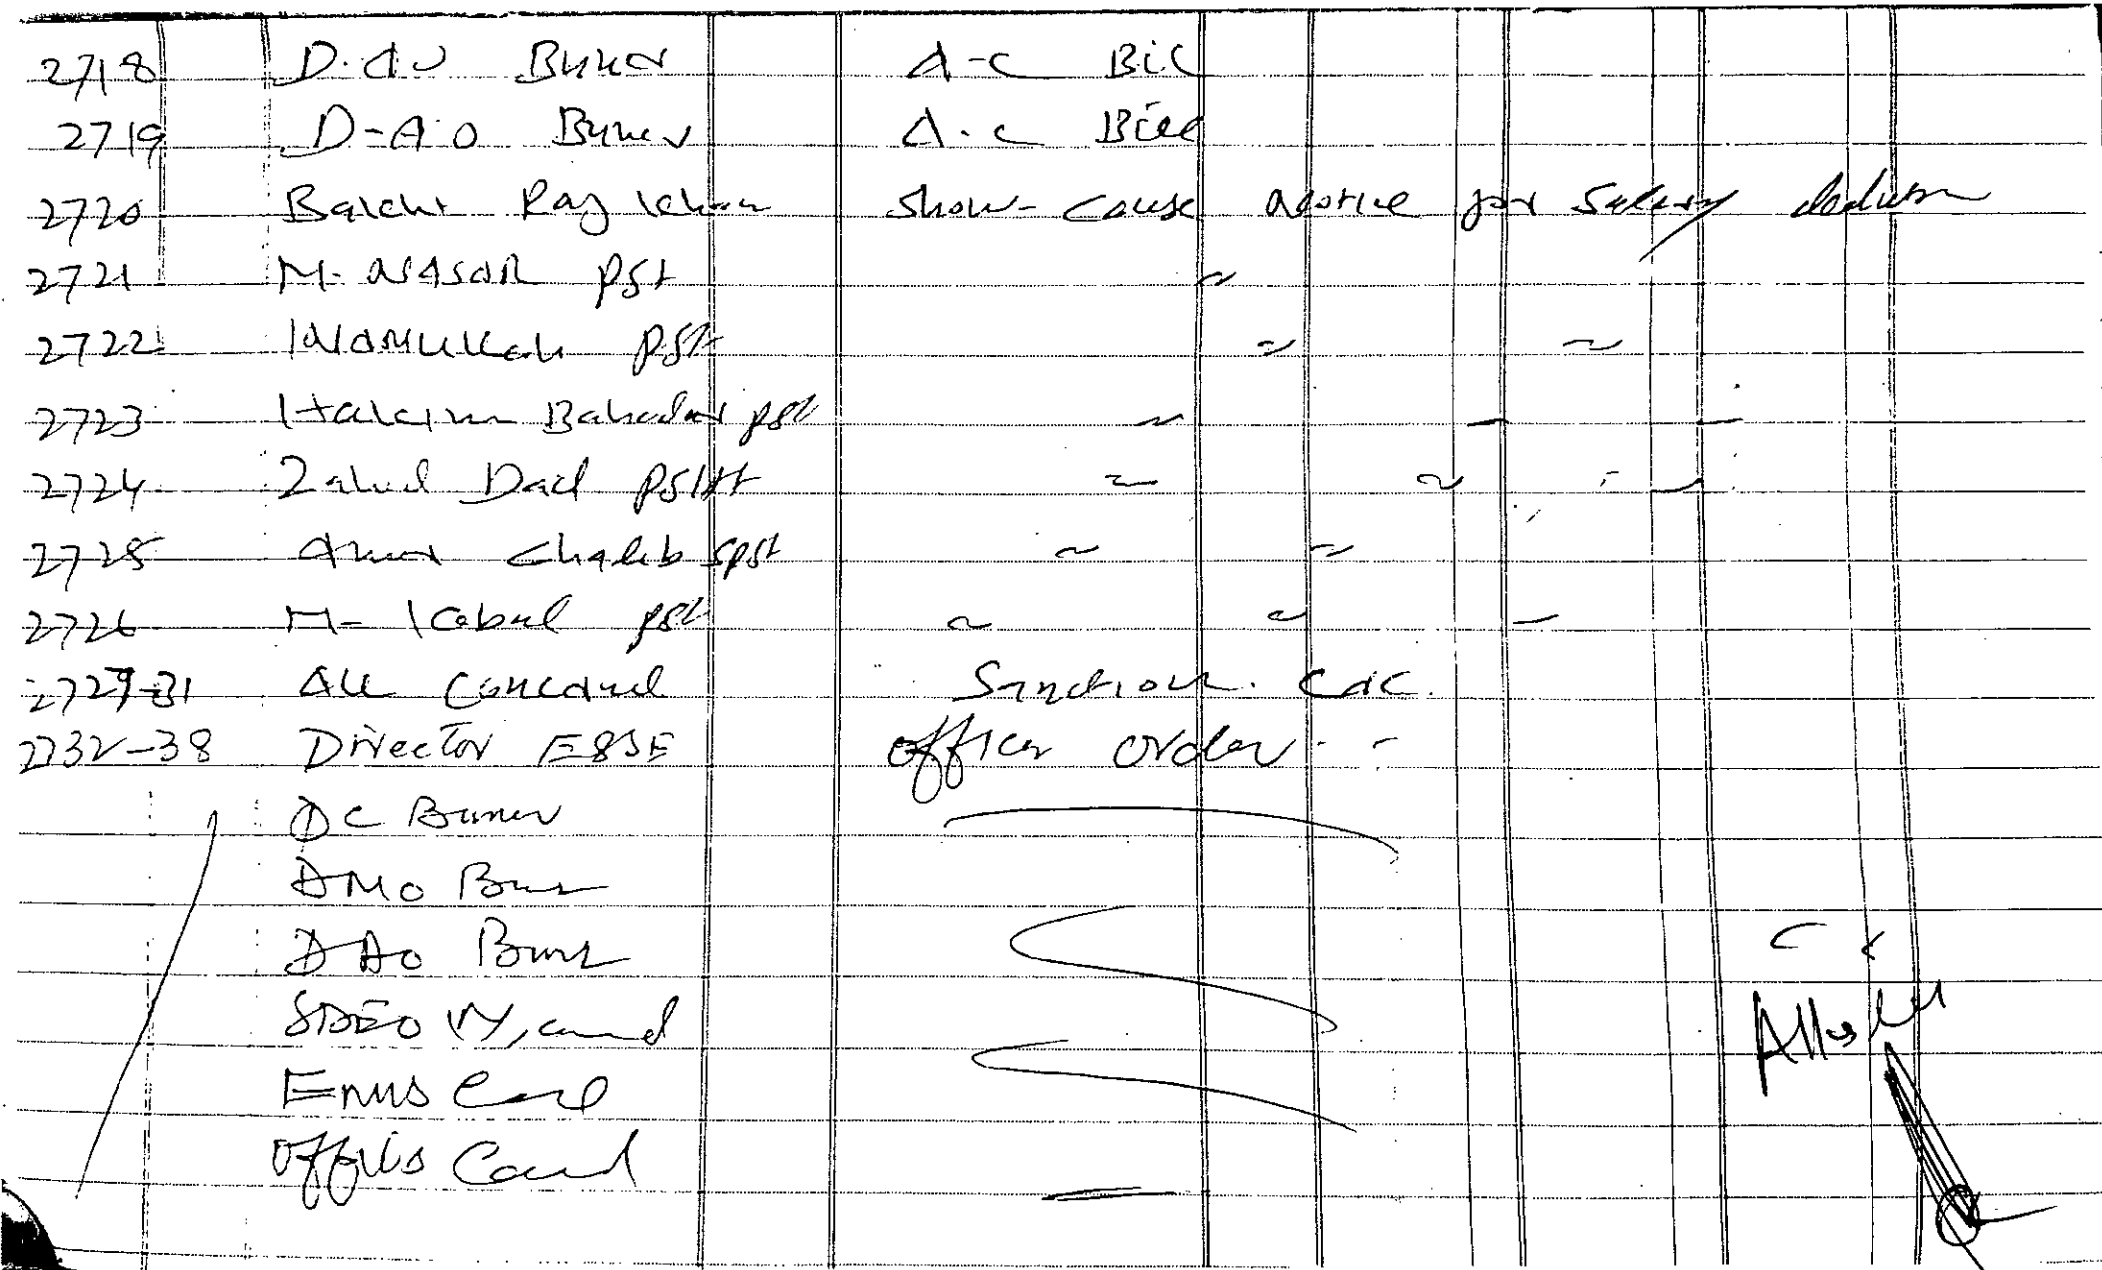 2718 D.A.O Buner A-C Bill
2719 D-A-O Buner A-C Bill
2720 Bakht Raj Khan Show-Cause notice for Salary deduction
2721 M-NASAR PST ~
2722 PST ~ ~
2723 Hakim Bahadar PST ~ ~ ~
2724 Zahid Dad PSHT ~ ~ ~
2725 Ghaleb SPST ~ ~
2726 M- PST ~ ~ ~
2729-31 All Concerned Sanction
2732-38 Director E&SE Office order
DC Buner
DMO Buner
DAO Buner
SDEO
Office Concerned